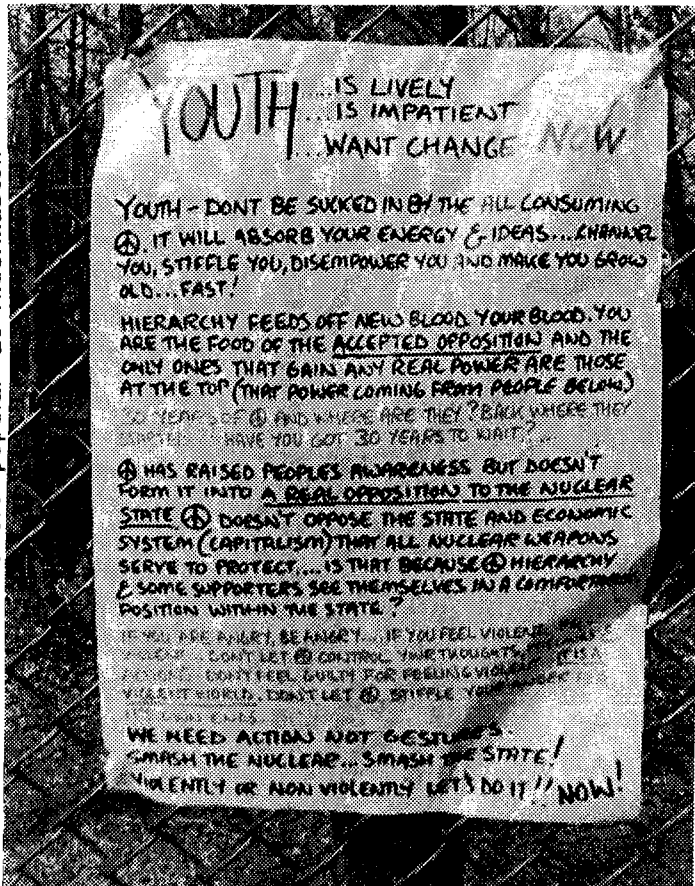 YOUTH ...IS LIVELY
...IS IMPATIENT
...WANT CHANGE NOW
YOUTH - DONT BE SUCKED IN BY THE ALL CONSUMING
☮. IT WILL ABSORB YOUR ENERGY & IDEAS...CHANNEL
YOU, STIFFLE YOU, DISEMPOWER YOU AND MAKE YOU GROW
OLD...FAST!
HIERARCHY FEEDS OFF NEW BLOOD. YOUR BLOOD. YOU
ARE THE FOOD OF THE ACCEPTED OPPOSITION AND THE
ONLY ONES THAT GAIN ANY REAL POWER ARE THOSE
AT THE TOP (THAT POWER COMING FROM PEOPLE BELOW)
30 YEARS OF ☮ AND WHERE ARE THEY? BACK WHERE THEY
HAVE YOU GOT 30 YEARS TO WAIT?...
☮ HAS RAISED PEOPLES AWARENESS BUT DOESN'T
FORM IT INTO A REAL OPPOSITION TO THE NUCLEAR
STATE ☮ DOESN'T OPPOSE THE STATE AND ECONOMIC
SYSTEM (CAPITALISM) THAT ALL NUCLEAR WEAPONS
SERVE TO PROTECT,... IS THAT BECAUSE ☮ HIERARCHY
& SOME SUPPORTERS SEE THEMSELVES IN A COMFORTABLE
POSITION WITHIN THE STATE?
IF YOU ARE ANGRY, BE ANGRY... IF YOU FEEL VIOLENT,
VIOLENT... DON'T LET ☮ CONTROL YOUR THOUGHTS,
DON'T FEEL GUILTY FOR FEELING VIOLENT IT IS A
VIOLENT WORLD. DON'T LET ☮ STIFFLE YOUR ANGER
WE NEED ACTION NOT GESTURES.
SMASH THE NUCLEAR... SMASH THE STATE!
VIOLENTLY OR NON VIOLENTLY LET'S DO IT!! NOW!